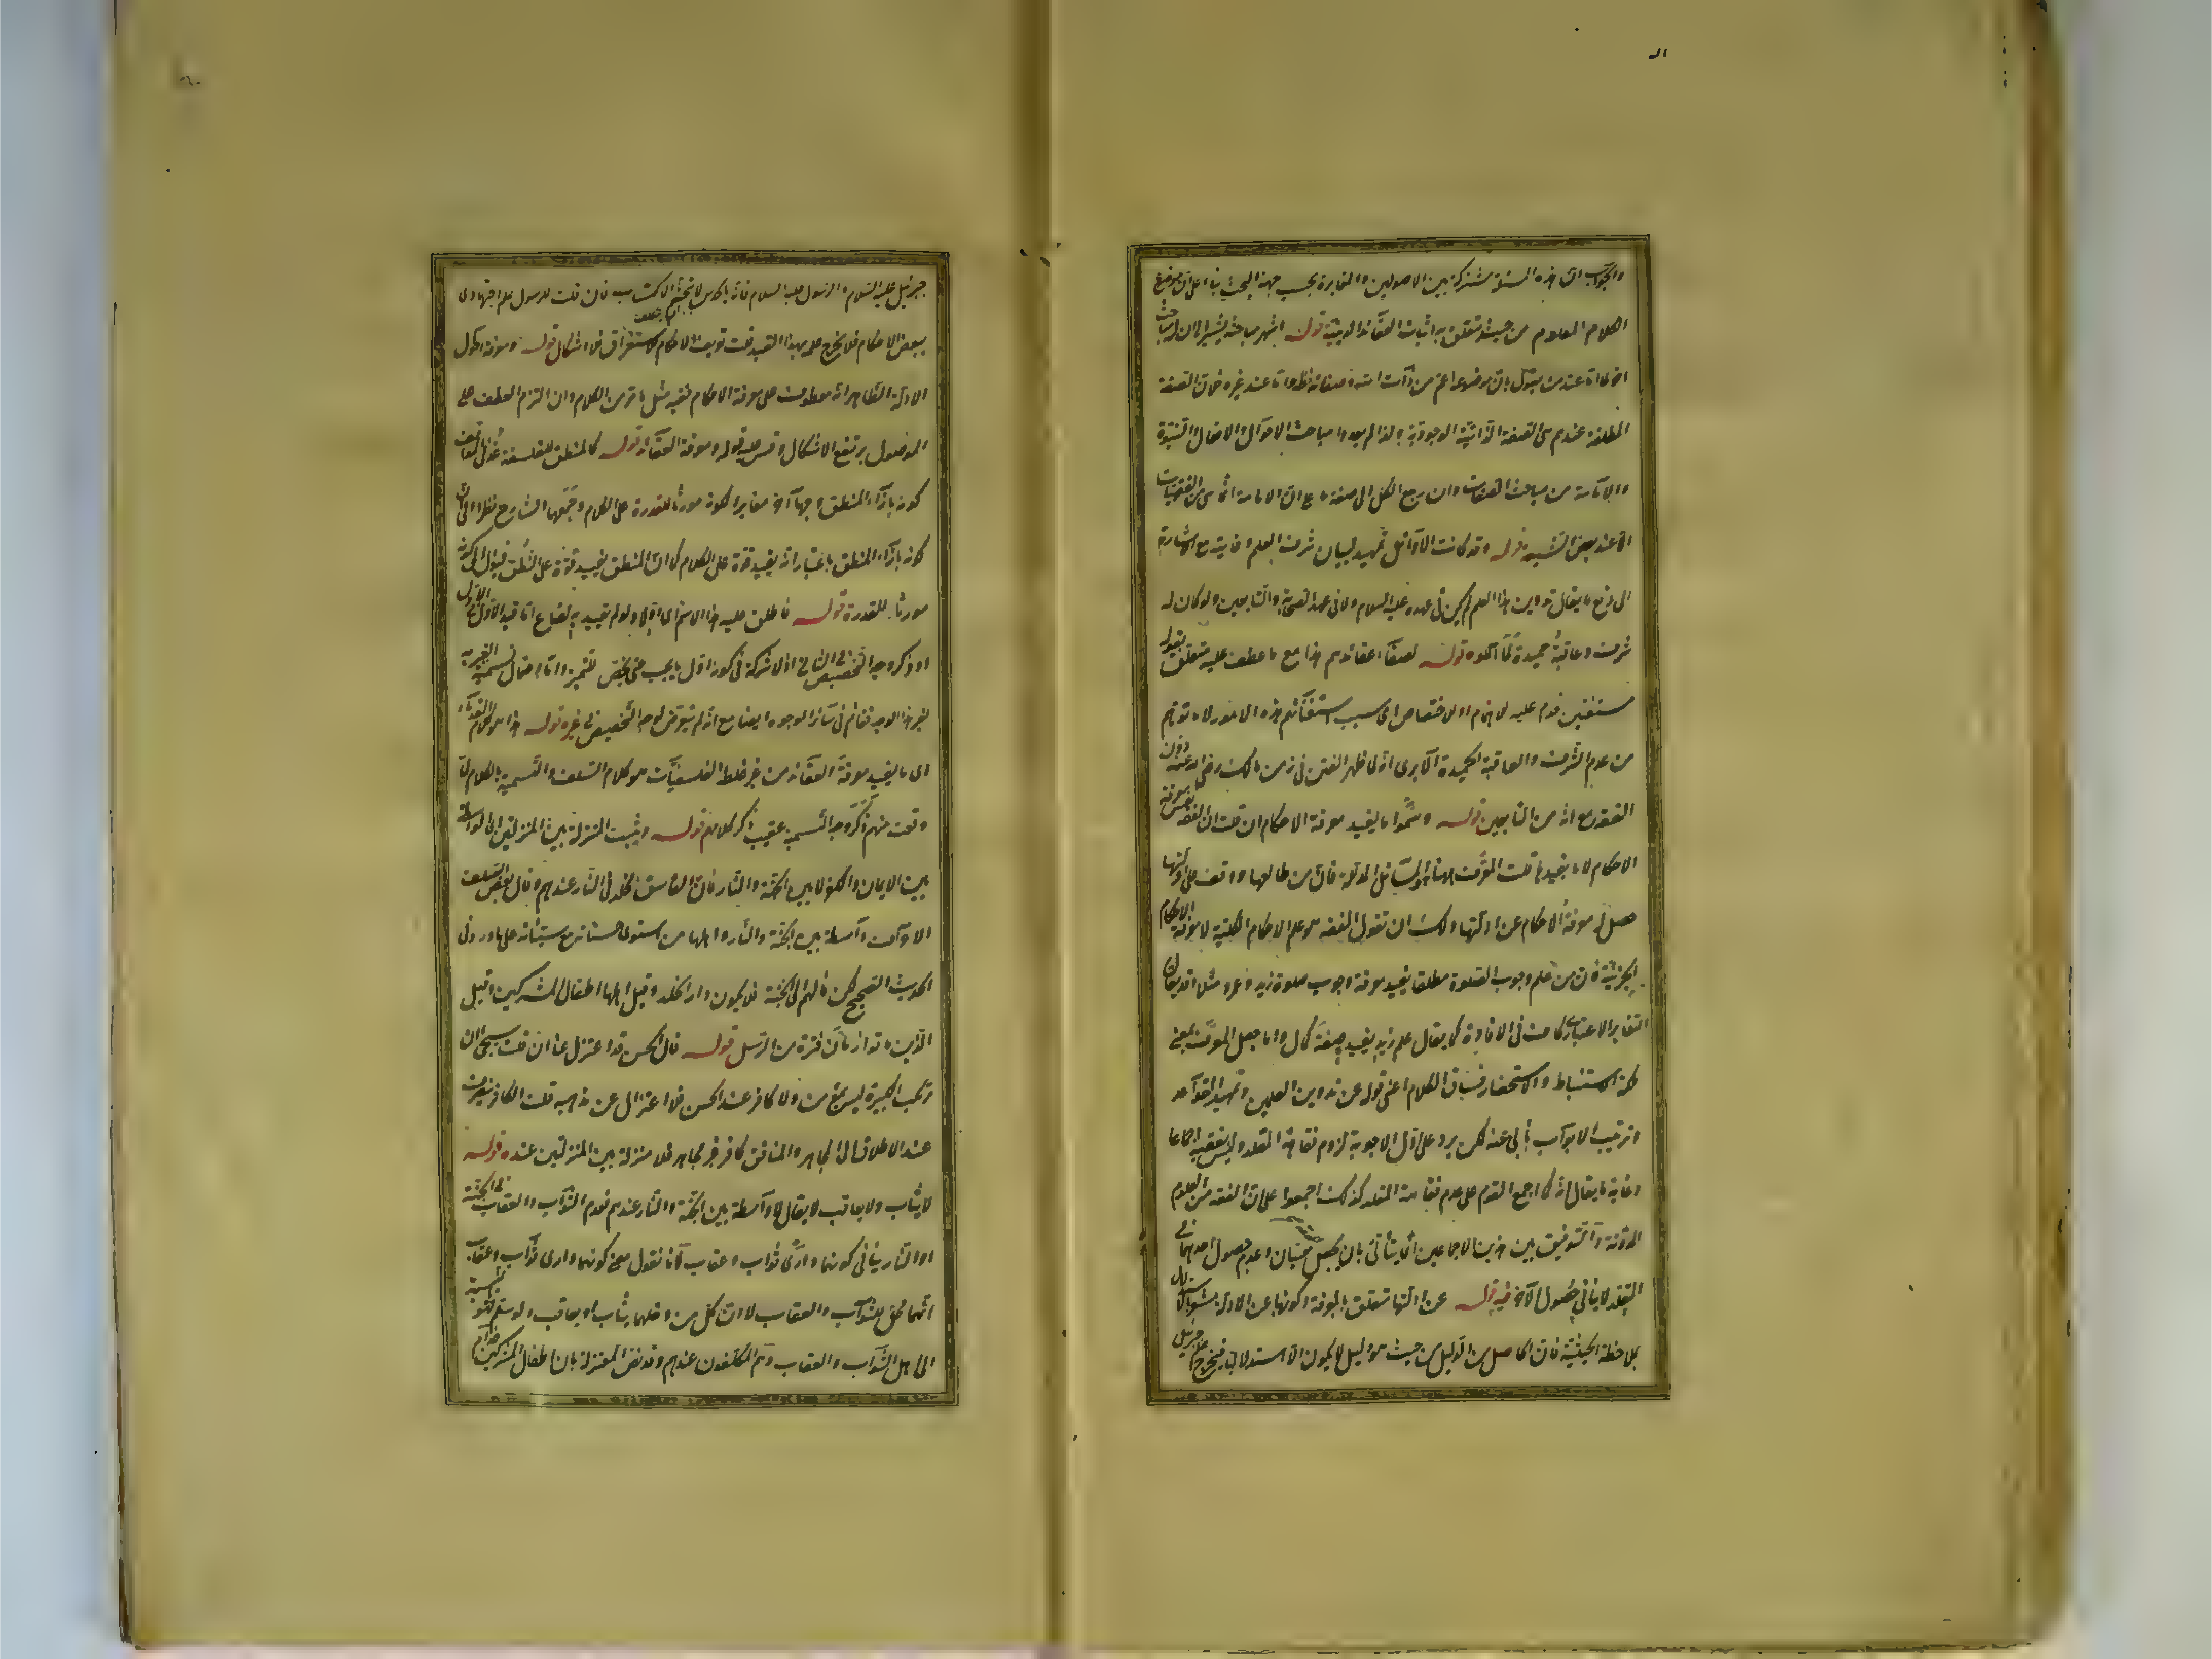 والجواب ان هذه المسئلة مشتركة بين الاصولين والمغايرة بحسب جهة البحث بناء على ان موضوع
الكلام المعلوم من حيث يتعلق به اثبات العقائد الدينية قوله اشهر مباحثه يشير الى ان له مباحث
اخرى اما عند من يقول بان موضوعه اعم من ذات الله وصفاته فظ واما عند غيره فلان الصفة
المطلقة عندهم هى الصفة الذاتية الوجودية ولذا لم يعدوا مباحث الاحوال والافعال والنبوة
والامامة من مباحث الصفات وان رجع الكل الى صفة ما على ان الامامة انما هى من الفقهيات
الا عند بعض الشيعة قوله وقد كانت الاوائل تمهيد لبيان شرف العلم وغايته مع الاشارة
الى دفع ما يقال تدوين هذا العلم لم يكن فى عهده عليه السلام ولا فى عهد الصحابة والتابعين ولو كان له
شرف وعاقبة حميدة لما اهملوه قوله لصفاء عقائدهم هذا مع ما عطف عليه متعلق بقوله
مستغنين قدم عليه للاهتمام او للاختصاص اى بسبب استغنائهم هذه الامور لا ما توهم
من عدم الشرف والعاقبة الحميدة الا يرى انه لما ظهر الفتن فى زمن مالك رضى الله عنه دون
الفقه مع انه من التابعين قوله وسموا ما يفيد معرفة الاحكام ان قلت الفقه نفس معرفة
الاحكام لا ما يفيدها قلت المعرفة هنا المسائل المدللة فان من طالعها ووقف على ادلتها
حصل له معرفة الاحكام عن ادلتها ولك ان تقول الفقه هو علم الاحكام الكلية لا معرفة الاحكام
الجزئية فان من علم وجوب الصلوة مطلقا يفيد معرفة وجوب صلوة زيد وعمرو مثلا وقد يقال
التغاير الاعتبارى كاف فى الافادة كما يقال علم زيد يفيد صفة كمال واما جعل المعرفة بمعنى
ملكة الاستنباط والاستحضار فسياق الكلام اعنى قوله عن تدوين العلمين وتمهيد القواعد
وترتيب الابواب يأبى عنه لكن يرد على اول الاجوبة لزوم فقاهة المقلد وليس بفقيه اجماعا
وغاية ما يقال انه كما اجمع القوم على عدم فقاهة المقلد كذلك اجمعوا على ان الفقه من العلوم
المدونة والتوفيق بين هذين الاجماعين انما يتأتى بان يجعل للفقه معنيان وعدم حصول احدهما فى
المقلد لا ينافى حصول الآخر فيه قوله عن ادلتها متعلق بالمعرفة وكونها عن الادلة مشعر بالاستدلال
بملاحظة الحيثية فان الحاصل من الدليل من حيث هو دليل لا يكون الا استدلاليا فيخرج علم جبرئيل
جبرئيل عليه السلام والرسول عليه السلام فانه بالحدس لا بتجشم الاكتساب فان قلت للرسول علم اجتهادى
ببعض الاحكام فلا يخرج علمه بهذا القيد قلت تعريف الاحكام للاستغراق فلا اشكال قوله ومعرفة احوال
الادلة الظاهر انه معطوف على معرفة الاحكام ففيه مثل ما مر من الكلام وان التزم العطف على
الموصول يرتفع الاشكال وقس عليه قوله ومعرفة العقائد قوله كالمنطق للفلسفة عد فى المواقف
كونه بازاء المنطق وجها آخر مغايرا لكونه مورثا للقدرة على الكلام وجمعهما الشارح نظرا الى ان
كونه بازاء المنطق باعتبار انه يفيد قوة على الكلام كما ان المنطق يفيد قوة على النطق فيؤل الى كونه
مورثا للقدرة قوله فاطلق عليه هذا الاسم اى اولا ولو لم يقيد به لضاع اما قيد الاول او الاول
او ذكر وجه التخصيص فى الثانى اذ لا شركة فى كونه اول ما يجب حتى يخص للتميز واما احتمال تسمية الغير به
لغير هذا الوجه فقائم فى سائر الوجوه ايضا مع انه لم يتعرض لوجه التخصيص فى غيره قوله هذا هو كلام القدماء
اى ما يفيد معرفة العقائد من غير خلط الفلسفيات هو كلام السلف والتسمية بالكلام لما
وقعت منهم ذكر وجه التسمية عقيب ذكر كلامهم قوله ويثبت المنزلة بين المنزلتين اى الواسطة
بين الايمان والكفر لا بين الجنة والنار فان الفاسق مخلد فى النار عندهم وقال بعض السلف
الاعراف واسطة بين الجنة والنار واهلها من استوى حسناته مع سيئاته على ما ورد فى
الحديث الصحيح لكن مآلهم الى الجنة فلا يكون دار الخلد وقيل اهلها اطفال المشركين وقيل
الذين ماتوا زمان فترة من الرسل قوله قال الحسن قد اعتزل عنا ان قلت سيجئ ان
مرتكب الكبيرة ليس بمؤمن ولا كافر عند الحسن فلا اعتزال عن مذهبه قلت الكافر ينصرف
عند الاطلاق الى المجاهر والمنافق كافر غير مجاهر فلا منزلة بين المنزلتين عنده قوله
لا يثاب ولا يعاقب لا يقال لا واسطة بين الجنة والنار عندهم فعدم الثواب والعقاب فى الجنة
او النار ينافى كونهما دارى ثواب وعقاب لانا نقول معنى كونهما دارى ثواب وعقاب
انهما محل للثواب والعقاب لا ان كل من دخلهما يثاب او يعاقب ولو سلم فهو بالنسبة
الى اهل الثواب والعقاب وهم المكلفون عندهم وقد نص المعتزلة بان اطفال المشركين خدام